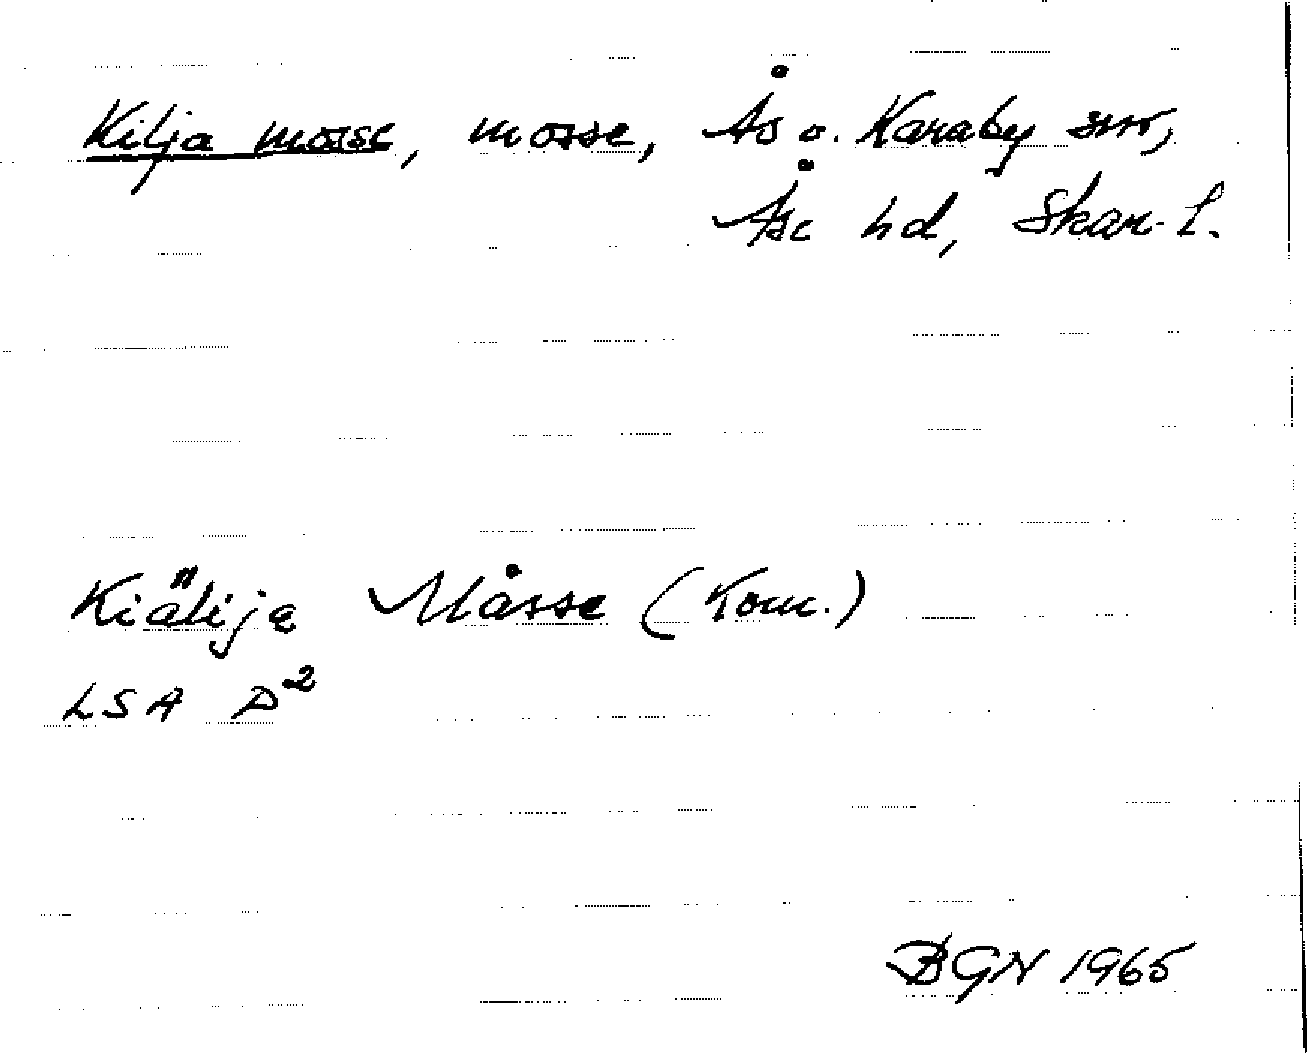 Kilja mosse, mosse, Ås o. Karaby snr,
Åse hd, Skar. l.
Kiälije Måsse (Kom.)
LSA D²
BGN 1965